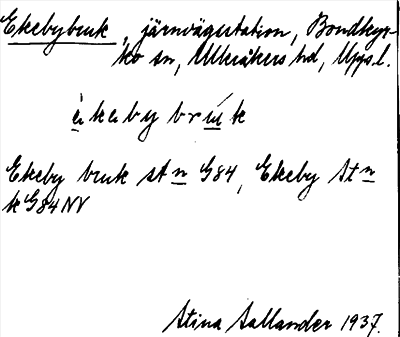 Ekebybruk, järnvägsstation, Bondkyr-
ko sn, Ulleråkers hd, Upps.l.
èkeby brúk
Ekeby bruk stn G84, Ekeby stn
k G84 NV
Stina Sallander 1937.